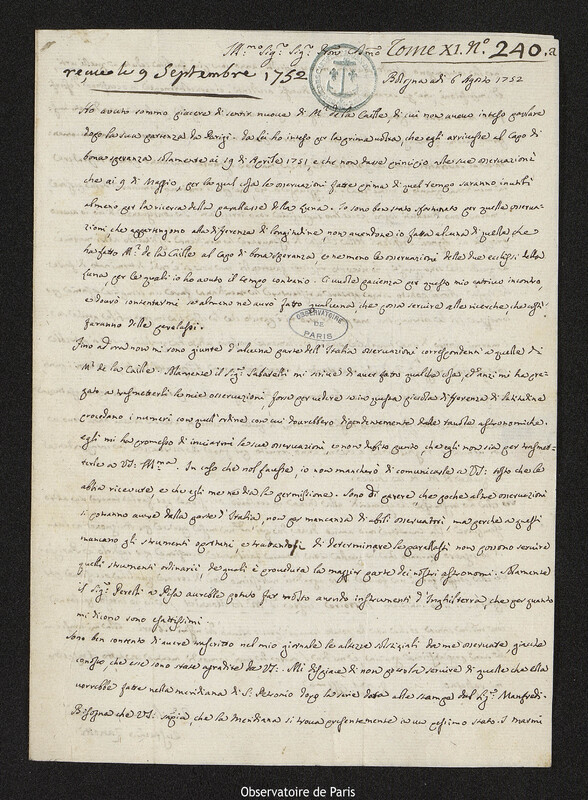 Ill.mo Sig.r Sig.r Pron Col.mo Tome XI. N.o 240.a
reçue le 9 Septembre 1752 Bologna adi 6 Agosto 1752
Ho avuto sommo piacere di sentir nuova di M.r de la Caille, di cui non aveva inteso parlare
dopo la sua partenza da Parigi. da lei ho inteso per la prima volta, che egli arrivasse al Capo di
bona speranza solamente ai 19 di Aprile 1751, e che non dasse principio alle sue osservazioni
che ai 9 di Maggio, per la qual cosa le osservazioni fatte prima di quel tempo saranno inutili
almeno per la ricerca della parallasse della Luna. Io sono ben stato sfortunato per quelle osserva-
zioni che appartengono alla differenza di longitudine, non avendone io fatta alcuna di quelle che
ha fatto M.r de la Caille al Capo di bona speranza, e nemeno le osservazioni delle due ecclissi della
Luna, per le quali io ho avuto il tempo contrario. Ci vuole pacienza per questo mio cattivo incontro,
e dovrò contentarmi se almeno ne avrò fatto qualcuna, che possa servire alle ricerche, che si
faranno delle paralassi.
OBSERVATOIRE
DE
PARIS
Fino ad ora non mi sono giunte d'alcuna parte dell'Italia osservazioni corrispondenti a quelle di
M.r de la Caille. Solamente il Sig.r Sabatelli mi scrive di aver fatto qualche cosa, ed anzi mi ha pre-
gato a trasmetterli le mie osservazioni, forse per vedere se in questa piccola differenza di latitudine
procedano i numeri con quell'ordine con cui dovrebbero dipendentemente dalle tavole astronomiche.
egli mi ha promesso di inviarmi le sue osservazioni, e non dubito punto, che egli non sia per trasmet-
terle a VS: Ill.ma. In caso che nol facesse, io non mancherò di comunicarle a VS: tosto che le
abbia ricevute, e che egli me ne dia la permissione. Sono di parere, che poche altre osservazioni
si potranno avere dalla parte d'Italia, non per mancanza di abili osservatori, ma perche a questi
mancano gli strumenti opportuni, e trattandosi di determinare le parallassi non possono servire
quelli strumenti ordinarii, de quali è proveduta la maggior parte dei nostri astronomi. Solamente
il Sig.r Perelli a Pisa avrebbe potuto far molto avendo instrumenti d'Inghilterra, che per quanto
mi dicono sono esattissimi.
Sono ben contento di avere inserito nel mio giornale le altezze solstiziali da me osservate, giacchè
conosco, che esse sono state agradite da VS: Mi dispiace di non poterla servire di quelle che ella
vorrebbe fatte nella meridiana di S. Petronio dopo la serie data alle stampe dal Sig.r Manfredi.
Bisogna che VS: sapia, che la meridiana si trova presentemente in un pessimo stato. I marmi
Observatoire de Paris